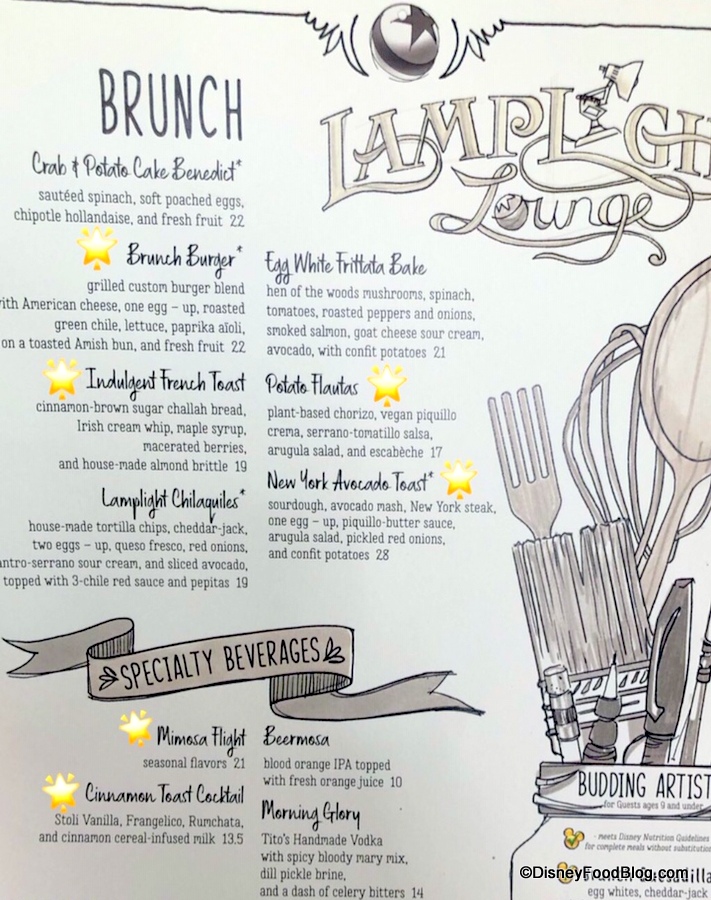 BRUNCH
Crab & Potato Cake Benedict*
sautéed spinach, soft poached eggs,
chipotle hollandaise, and fresh fruit 22
Brunch Burger*
grilled custom burger blend
with American cheese, one egg – up, roasted
green chile, lettuce, paprika aïoli,
on a toasted Amish bun, and fresh fruit 22
Indulgent French Toast
cinnamon-brown sugar challah bread,
Irish cream whip, maple syrup,
macerated berries,
and house-made almond brittle 19
Lamplight Chilaquiles*
house-made tortilla chips, cheddar-jack,
two eggs – up, queso fresco, red onions,
antro-serrano sour cream, and sliced avocado,
topped with 3-chile red sauce and pepitas 19
LAMPLIGH
Lounge
Egg White Frittata Bake
hen of the woods mushrooms, spinach,
tomatoes, roasted peppers and onions,
smoked salmon, goat cheese sour cream,
avocado, with confit potatoes 21
Potato Flautas
plant-based chorizo, vegan piquillo
crema, serrano-tomatillo salsa,
arugula salad, and escabèche 17
New York Avocado Toast*
sourdough, avocado mash, New York steak,
one egg – up, piquillo-butter sauce,
arugula salad, pickled red onions,
and confit potatoes 28
SPECIALTY BEVERAGES
Mimosa Flight
seasonal flavors 21
Cinnamon Toast Cocktail
Stoli Vanilla, Frangelico, Rumchata,
and cinnamon cereal-infused milk 13.5
Beermosa
blood orange IPA topped
with fresh orange juice 10
Morning Glory
Tito's Handmade Vodka
with spicy bloody mary mix,
dill pickle brine,
and a dash of celery bitters 14
BUDDING ARTIST
for Guests ages 9 and under
- meets Disney Nutrition Guidelines
for complete meals without substitution
©DisneyFoodBlog.com
egg whites, cheddar-jack